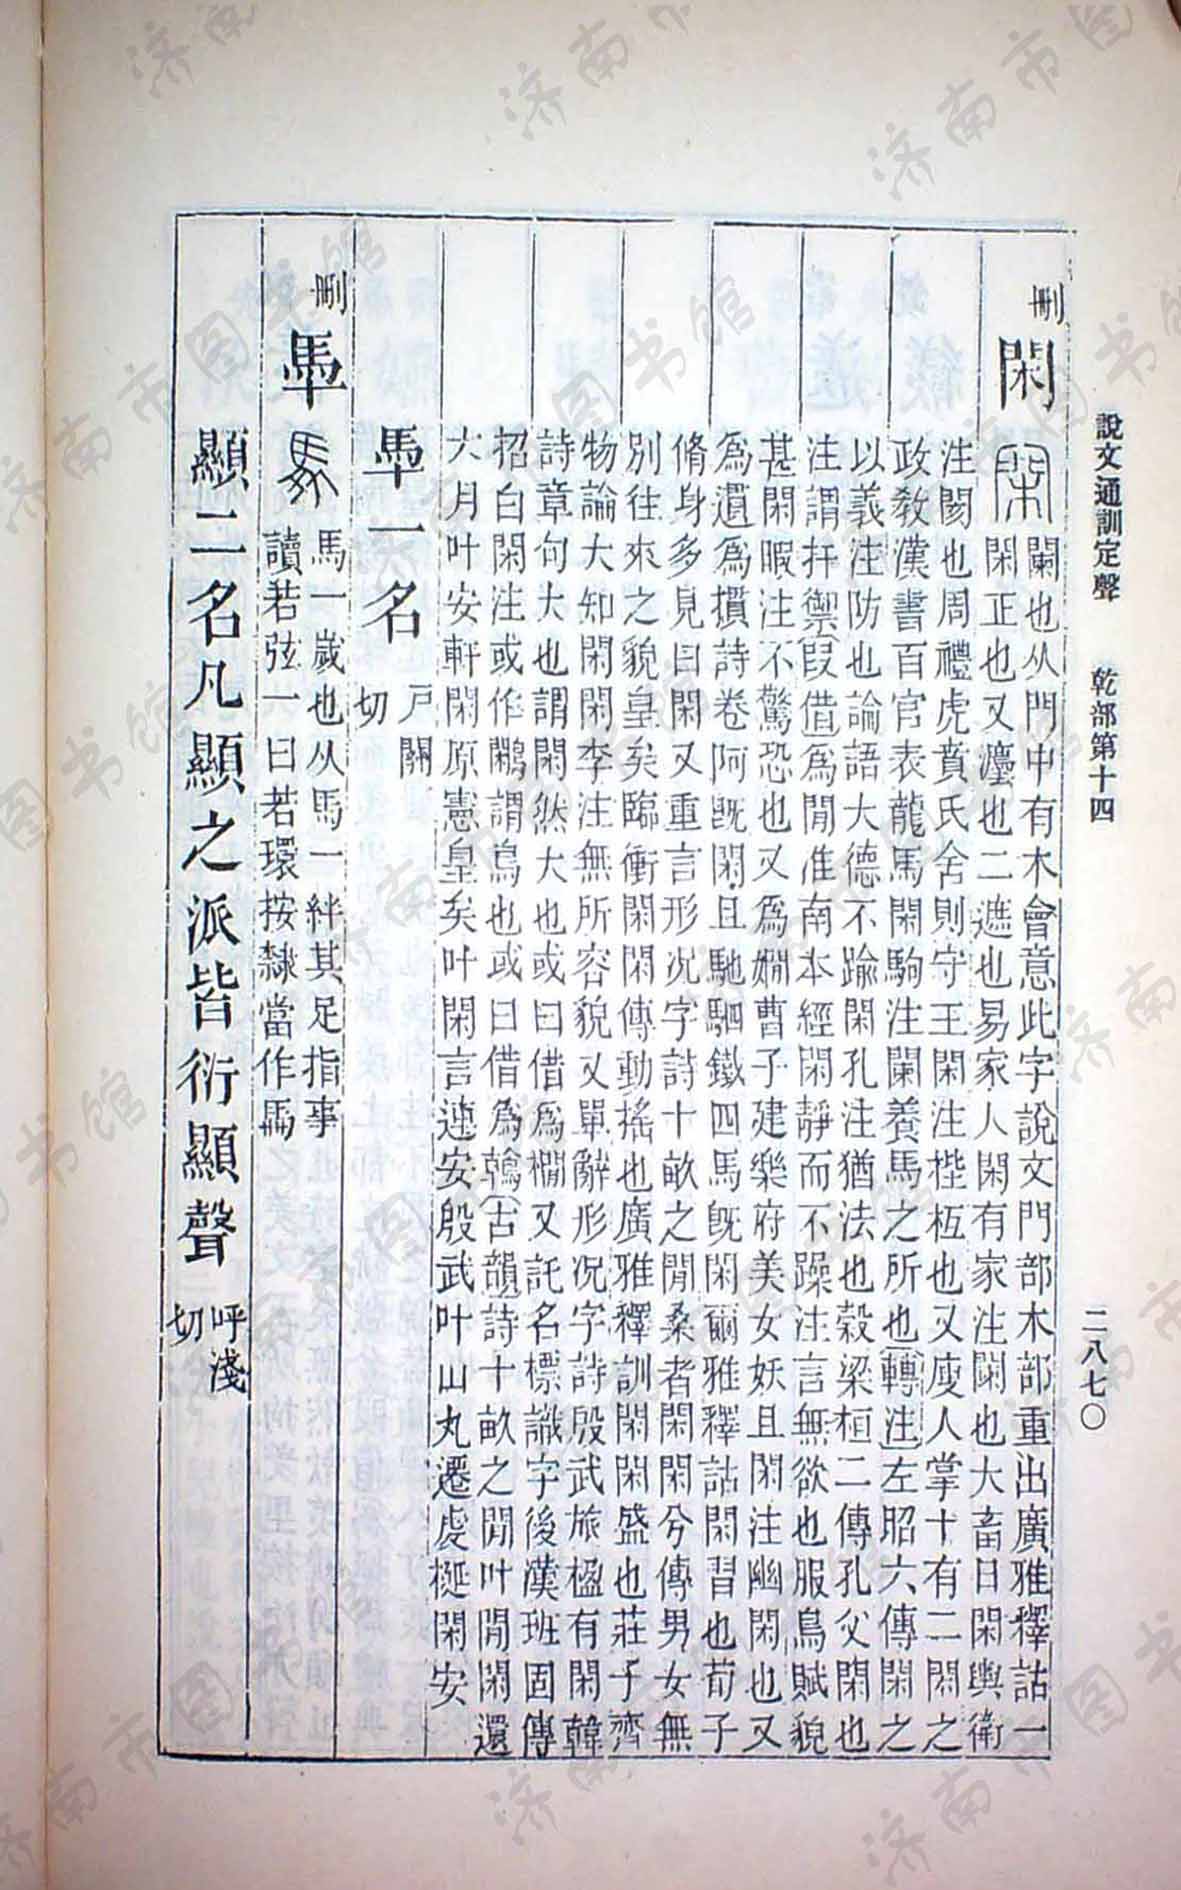 說文通訓定聲　乾部第十四　二八七〇
刪閑
闌也从門中有木會意此字說文門部木部重出廣雅釋詁一
閑正也又灋也二遮也易家人閑有家注閡也大畜日閑輿衛
注閡也周禮虎賁氏舍則守王閑注梐枑也又廋人掌十有二閑之
政教漢書百官表龍馬閑駒注闌養馬之所也轉注左昭六傳閑之
以義注防也論語大德不踰閑孔注猶法也穀梁桓二傳孔父閑也
注謂扞禦叚借為閒淮南本經閑靜而不躁注言無欲也服鳥賦貌
甚閑暇注不驚恐也又為嫺曹子建樂府美女妖且閑注幽閑也又
為遺為摜詩卷阿旣閑且馳駟鐵四馬旣閑爾雅釋詁閑習也荀子
脩身多見曰閑又重言形况字詩十畝之閒桑者閑閑兮傳男女無
別往來之貌皇矣臨衝閑閑傳動搖也廣雅釋訓閑閑盛也莊子齊
物論大知閑閑李注無所容貌又單辭形况字詩殷武旅楹有閑韓
詩章句大也謂閑然大也或曰借為橺又託名標識字後漢班固傳
招白閑注或作鷴謂鳥也或曰借為鶾古韻詩十畝之閒叶閒閑還
大月叶安軒閑原憲皇矣叶閑言連安殷武叶山丸遷虔梴閑安
一名戶關切
刪
馬一歲也从馬一絆其足指事
讀若弦一曰若環按隸當作
顯二名凡顯之派皆衍顯聲呼淺切
济南市图书馆